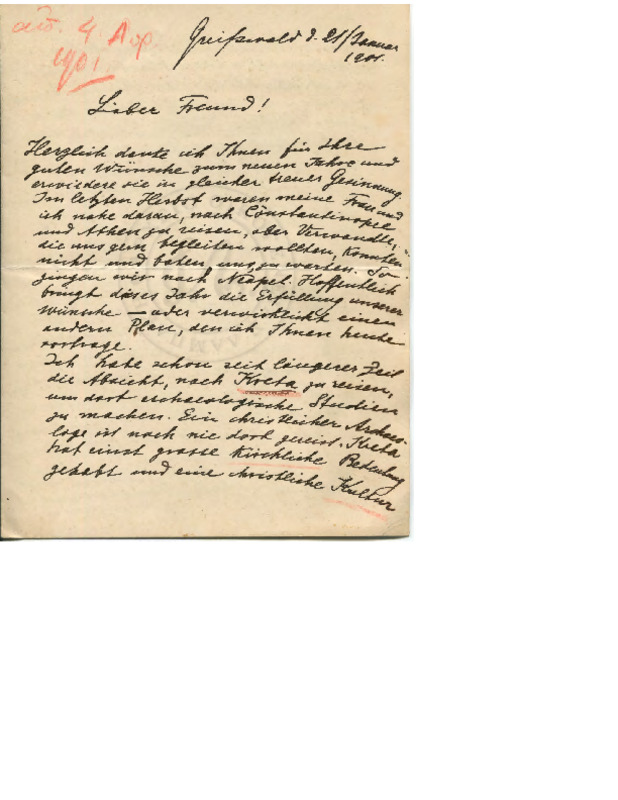 4. Апр.
1901.
Greifswald d. 21/Januar
1901.
Lieber Freund!
Herzlich danke ich Ihnen für Ihre
guten Wünsche zum neuen Jahre und
erwiedere sie in gleicher treuer Gesinnung.
Im letzten Herbst waren meine Frau und
ich nahe daran, nach Constantinopel
und Athen zu reisen, aber Verwandte,
die uns gern begleiten wollten, konnten
nicht und baten, uns zu warten. So
gingen wir nach Neapel. Hoffentlich
bringt dieses Jahr die Erfüllung unserer
Wünsche — oder verwirklicht einen
andern Plan, den ich Ihnen heute
vortrage.
Ich habe schon seit längerer Zeit
die Absicht, nach Kreta zu reisen,
um dort archaeologische Studien
zu machen. Ein christlicher Archaeo-
loge ist noch nie dort gereist. Kreta
hat einst grosse kirchliche Bedeutung
gehabt und eine christliche Kultur